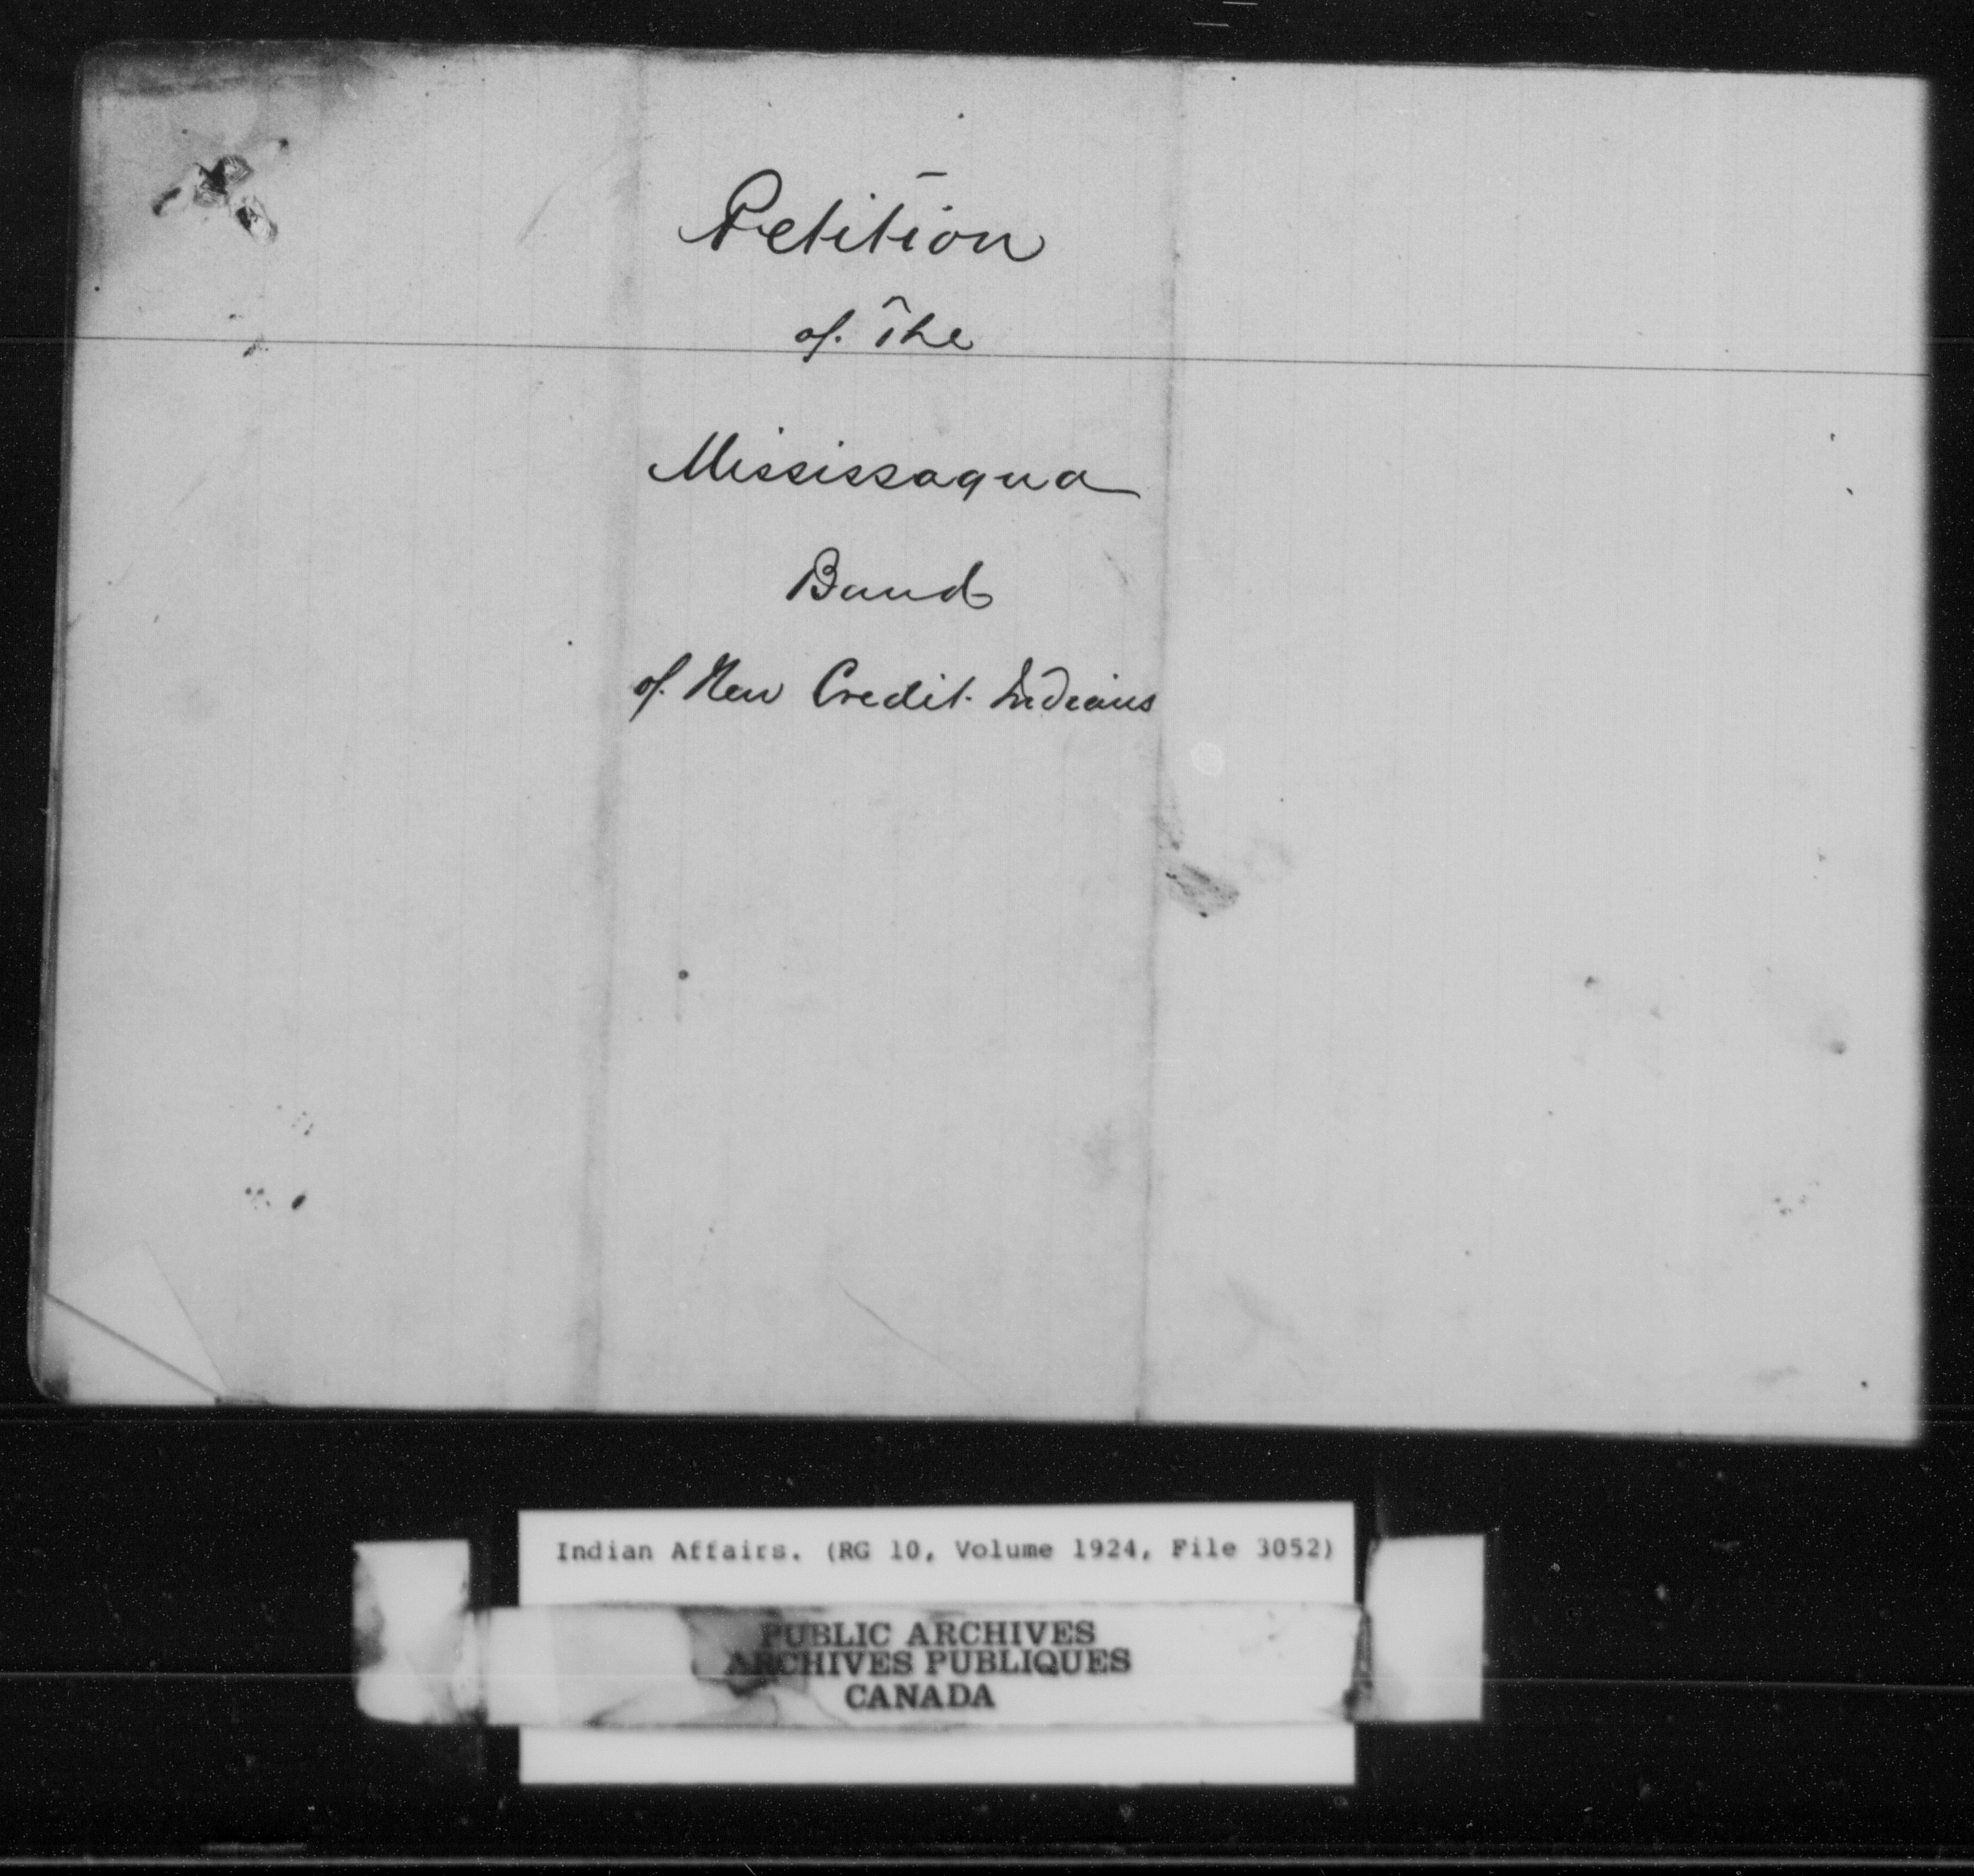 Petition
of The
Mississaqua
Band
of New Credit Indians
Indian Affairs. (RG 10, Volume 1924, File 3052)
PUBLIC ARCHIVES
ARCHIVES PUBLIQUES
CANADA